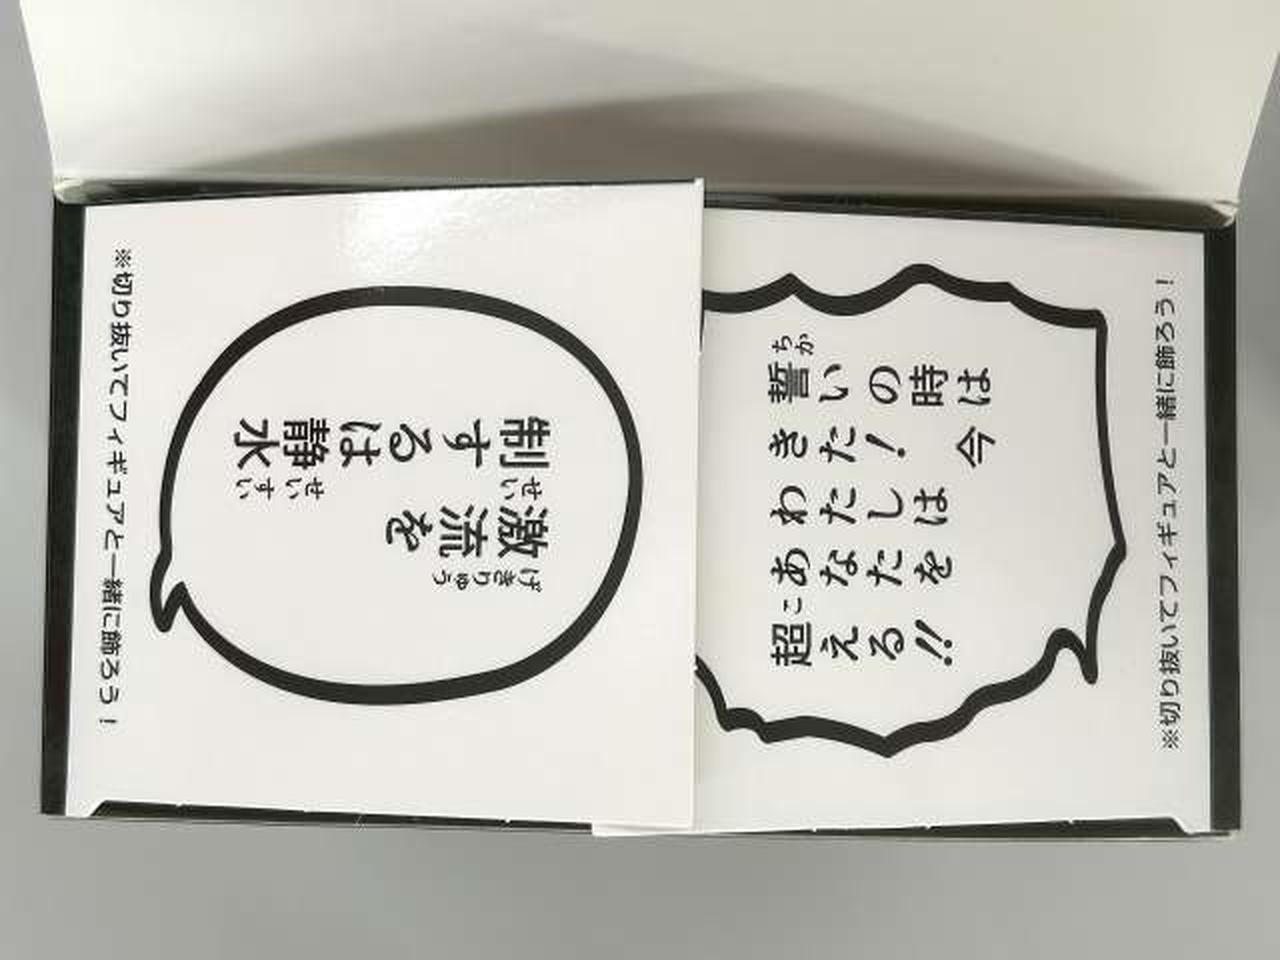 ※切り抜いてフィギュアと一緒に飾ろう！
激流を
げきりゅう
制するは静水
せい
せいすい
誓いの時は
ちか
きた！ 今
わたしは
あなたを
超える!!
こ
※切り抜いてフィギュアと一緒に飾ろう！